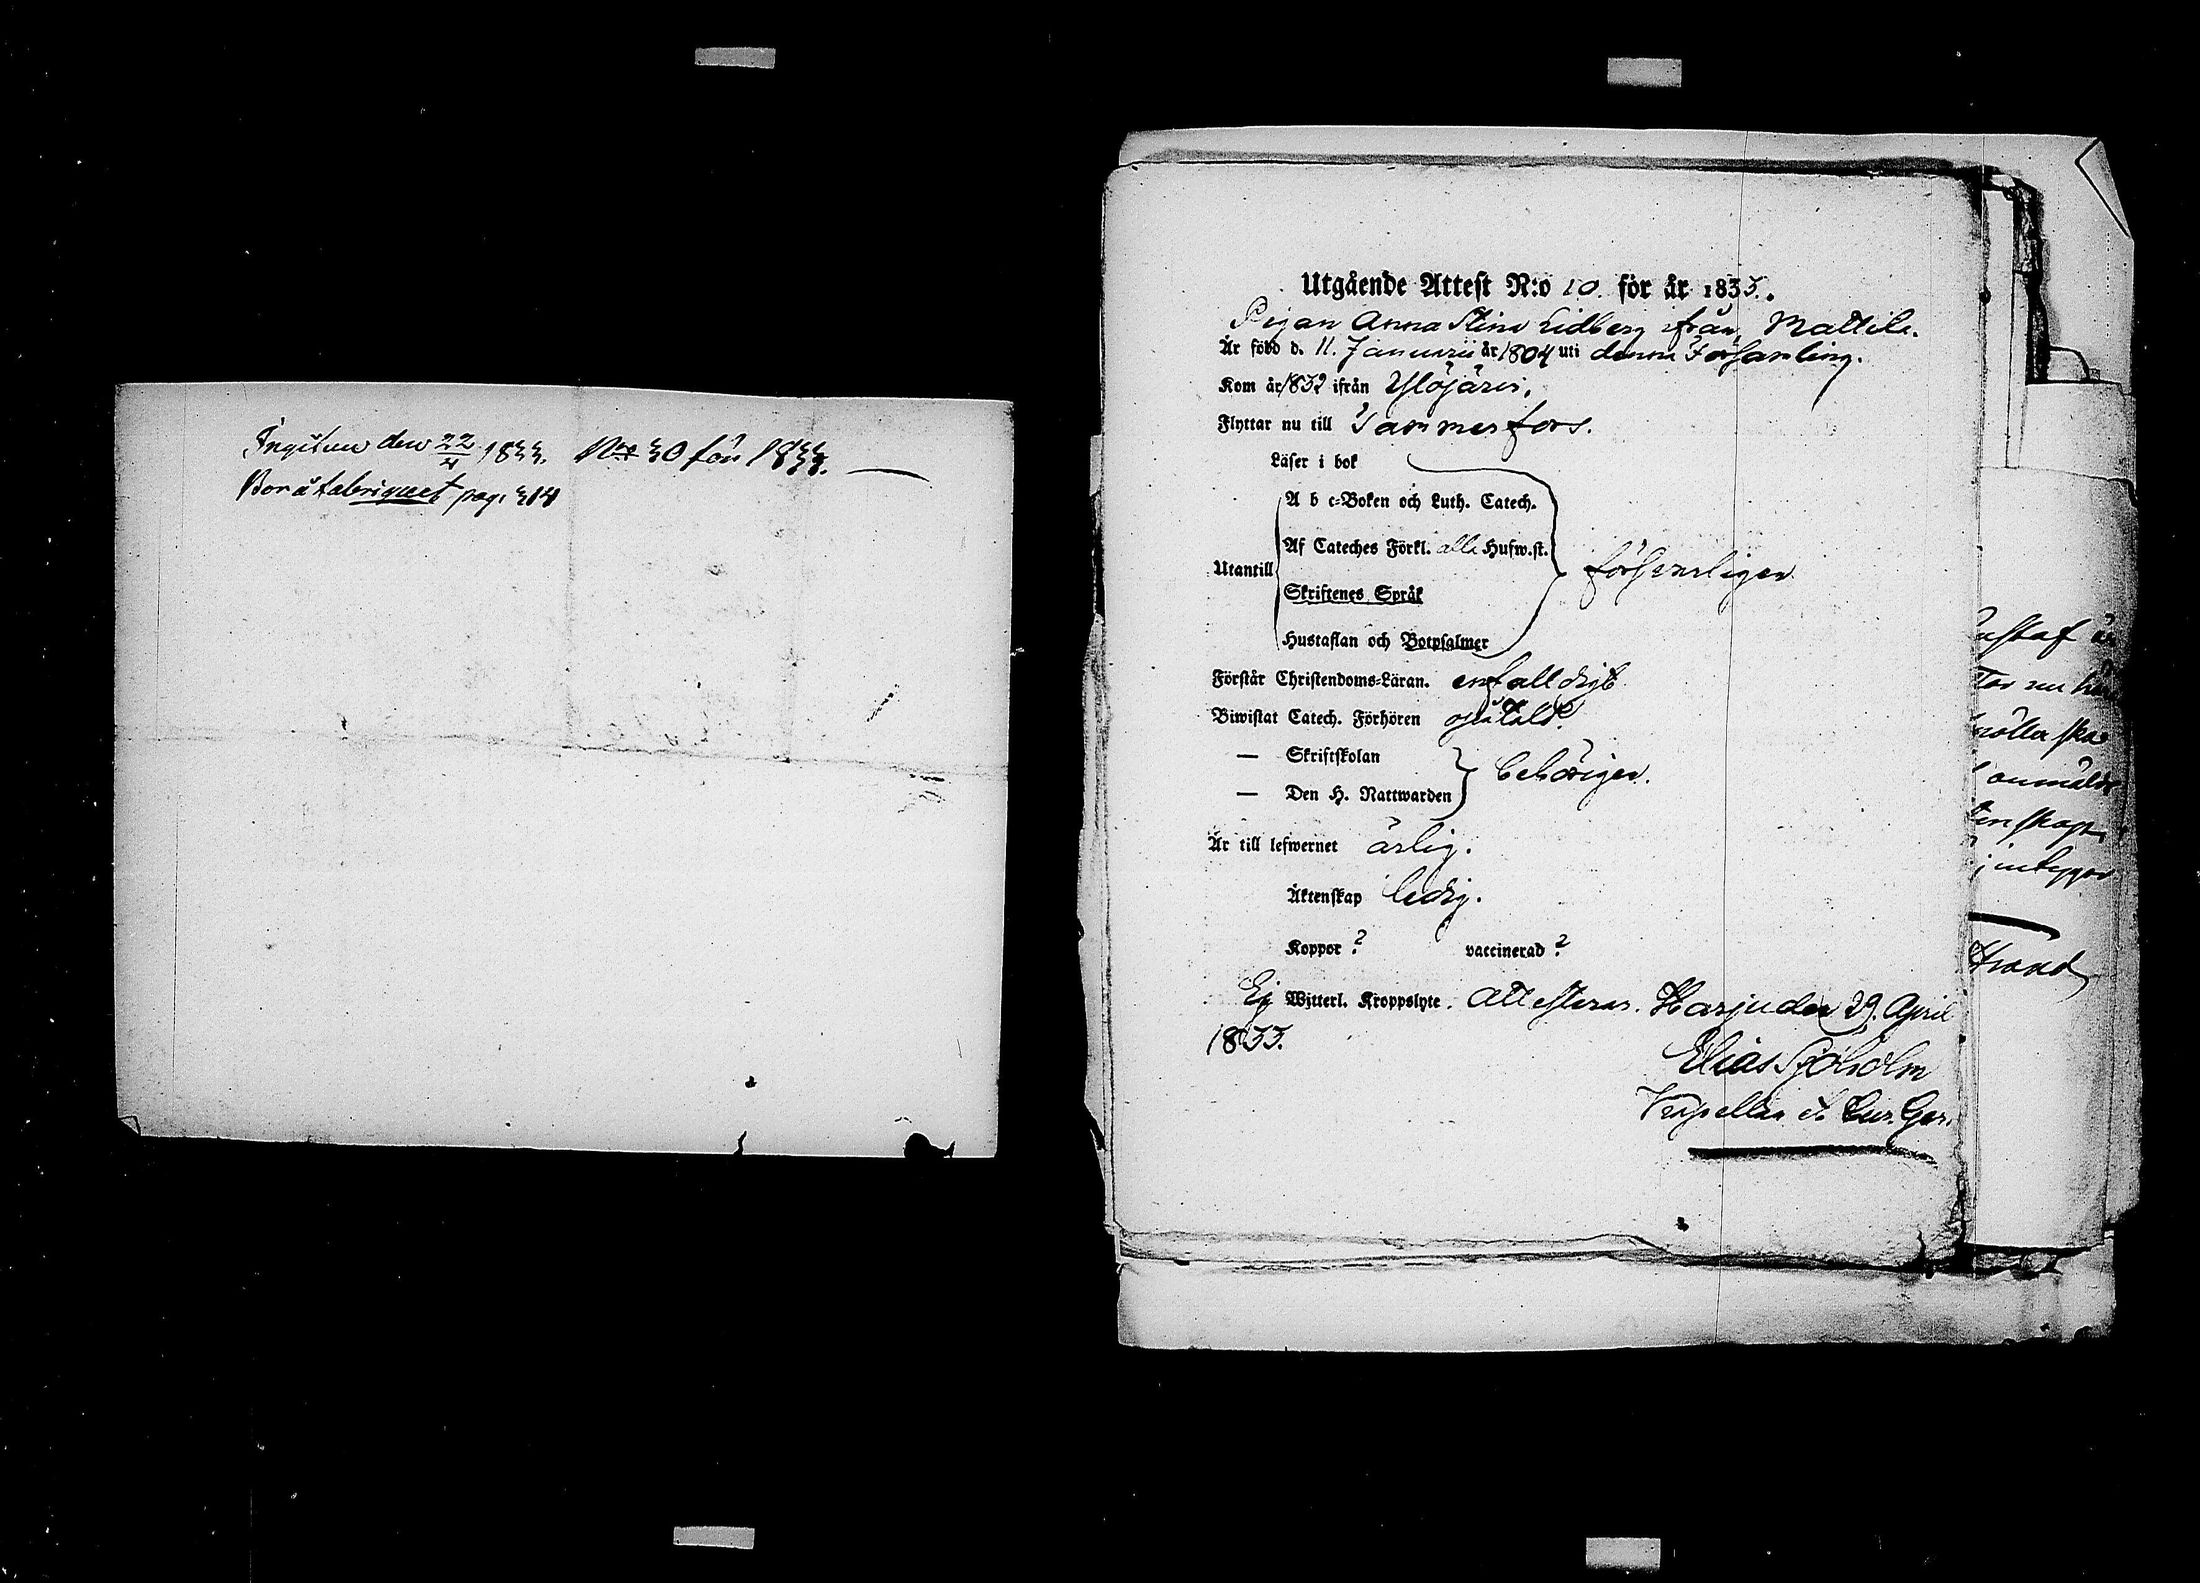 Ingifven den 22/4 1833. No 30 för 1833.
Bor å fabriquet pag. 314
Utgående Attest N:o 10. för år 1833.
Pigan Anna Stina Lidberg ifrån Mattila.
Är född d. 11. Januarii år 1804 uti denna Församling.
Kom år 1832 ifrån Ylöjärvi.
Flyttar nu till Tammerfors.
Läser i bok
A b c-Boken och Luth. Catech.
Af Cateches Förkl. alla Hufw.st.
Utantill försvarligen
Skriftenes Språk
Hustaflan och Botpsalmer
Förstår Christendoms-Läran. enfalldigt
Biwistat Catech. Förhören
— Skriftskolan
behörigen.
— Den H. Nattwarden
Är till lefwernet ärlig.
Äktenskap ledig.
Koppor ? vaccinerad ?
Ej Witterl. Kroppslyte. attesterar. Harju den 29. April
1833.
Elias Sjöholm
Kapellan Cur. Ger.
ustaf är
Tar nu
ska
anmäld
enskap,
intygar
strand